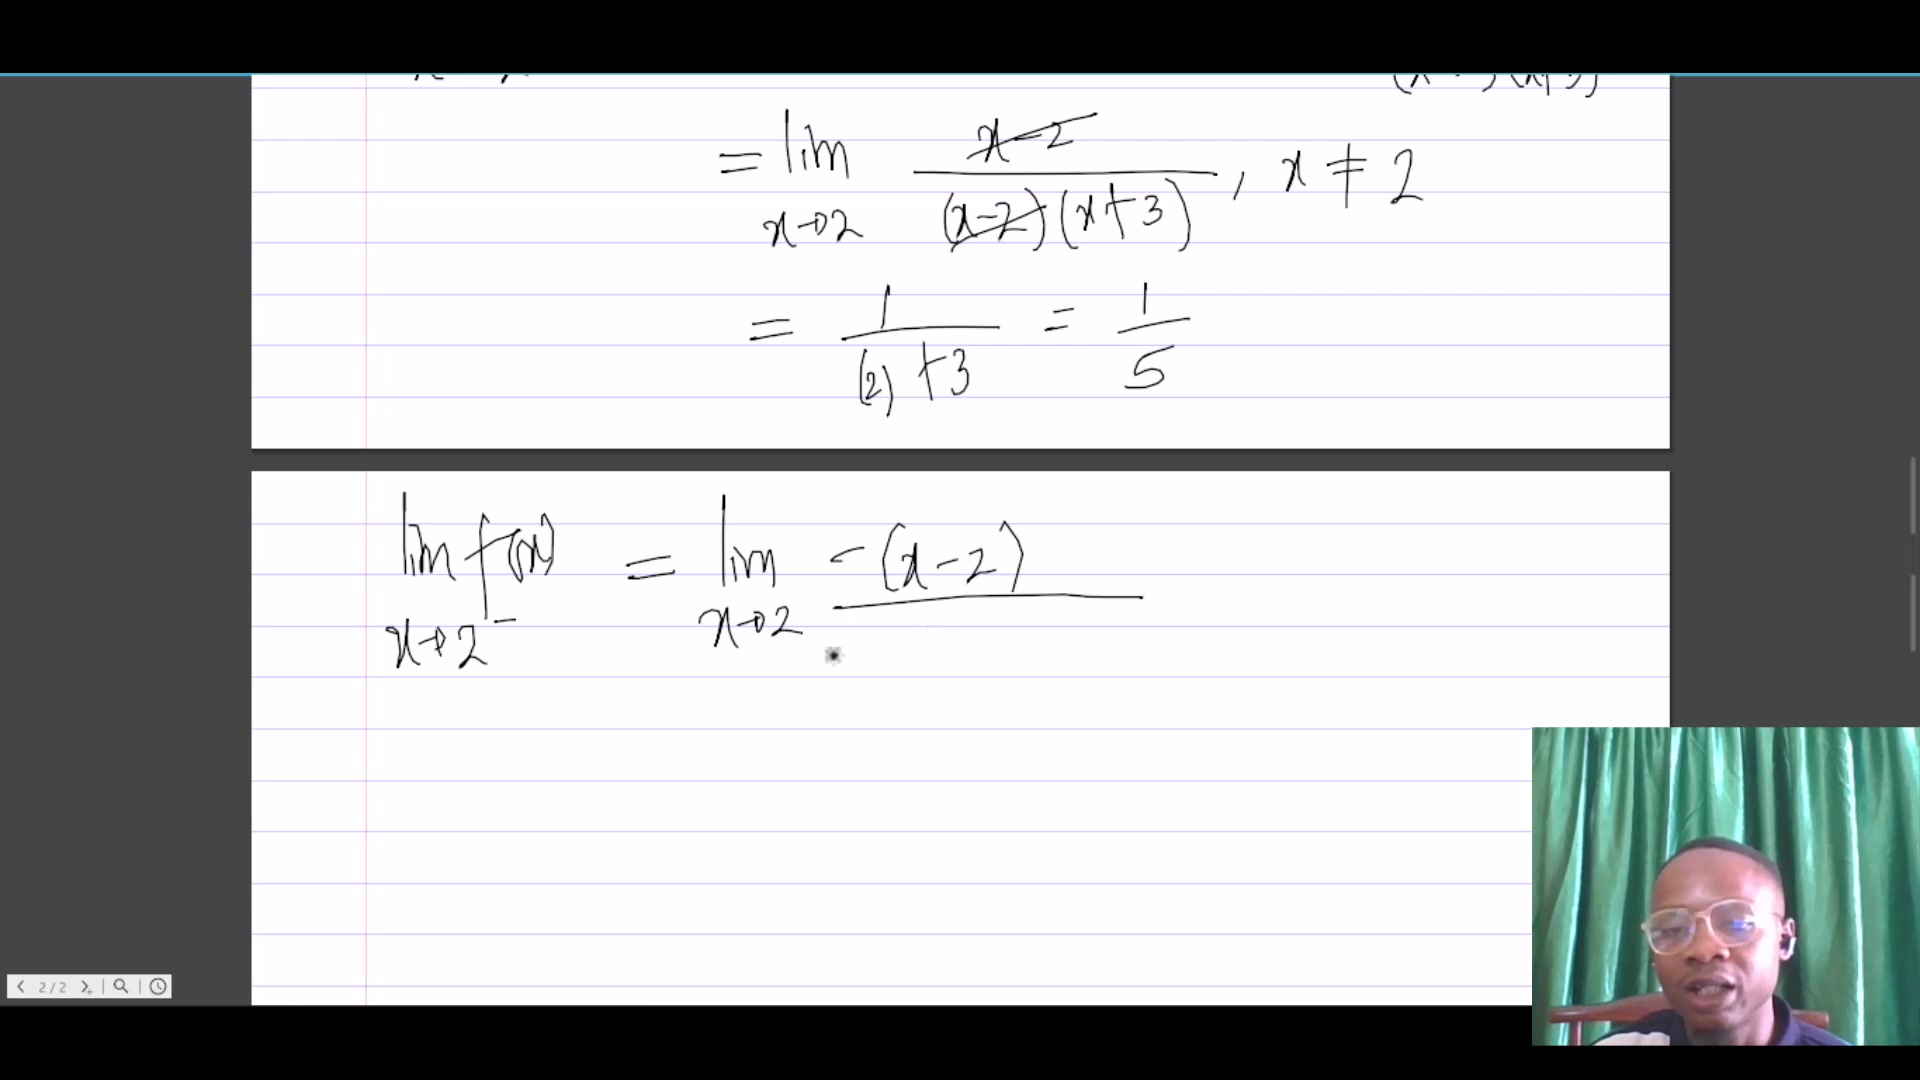 = lim x-2 / (x-2)(x+3) , x ≠ 2
x→2
= 1 / (2)+3 = 1 / 5
lim f(x) = lim -(x-2)
x→2⁻ x→2
2/2